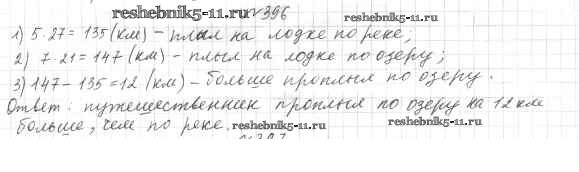 reshebnik5-11.ru №396 reshebnik5-11.ru
1) 5·27 = 135 (км) – плыл на лодке по реке;
2) 7·21 = 147 (км) – плыл на лодке по озеру;
3) 147 – 135 = 12 (км) – больше проплыл по озеру.
Ответ: путешественник проплыл по озеру на 12 км
больше, чем по реке. reshebnik5-11.ru reshebnik5-11.ru